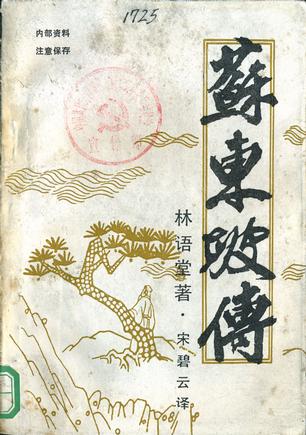 1725
内部资料
注意保存
蘇東坡傳
林语堂著·宋碧云译